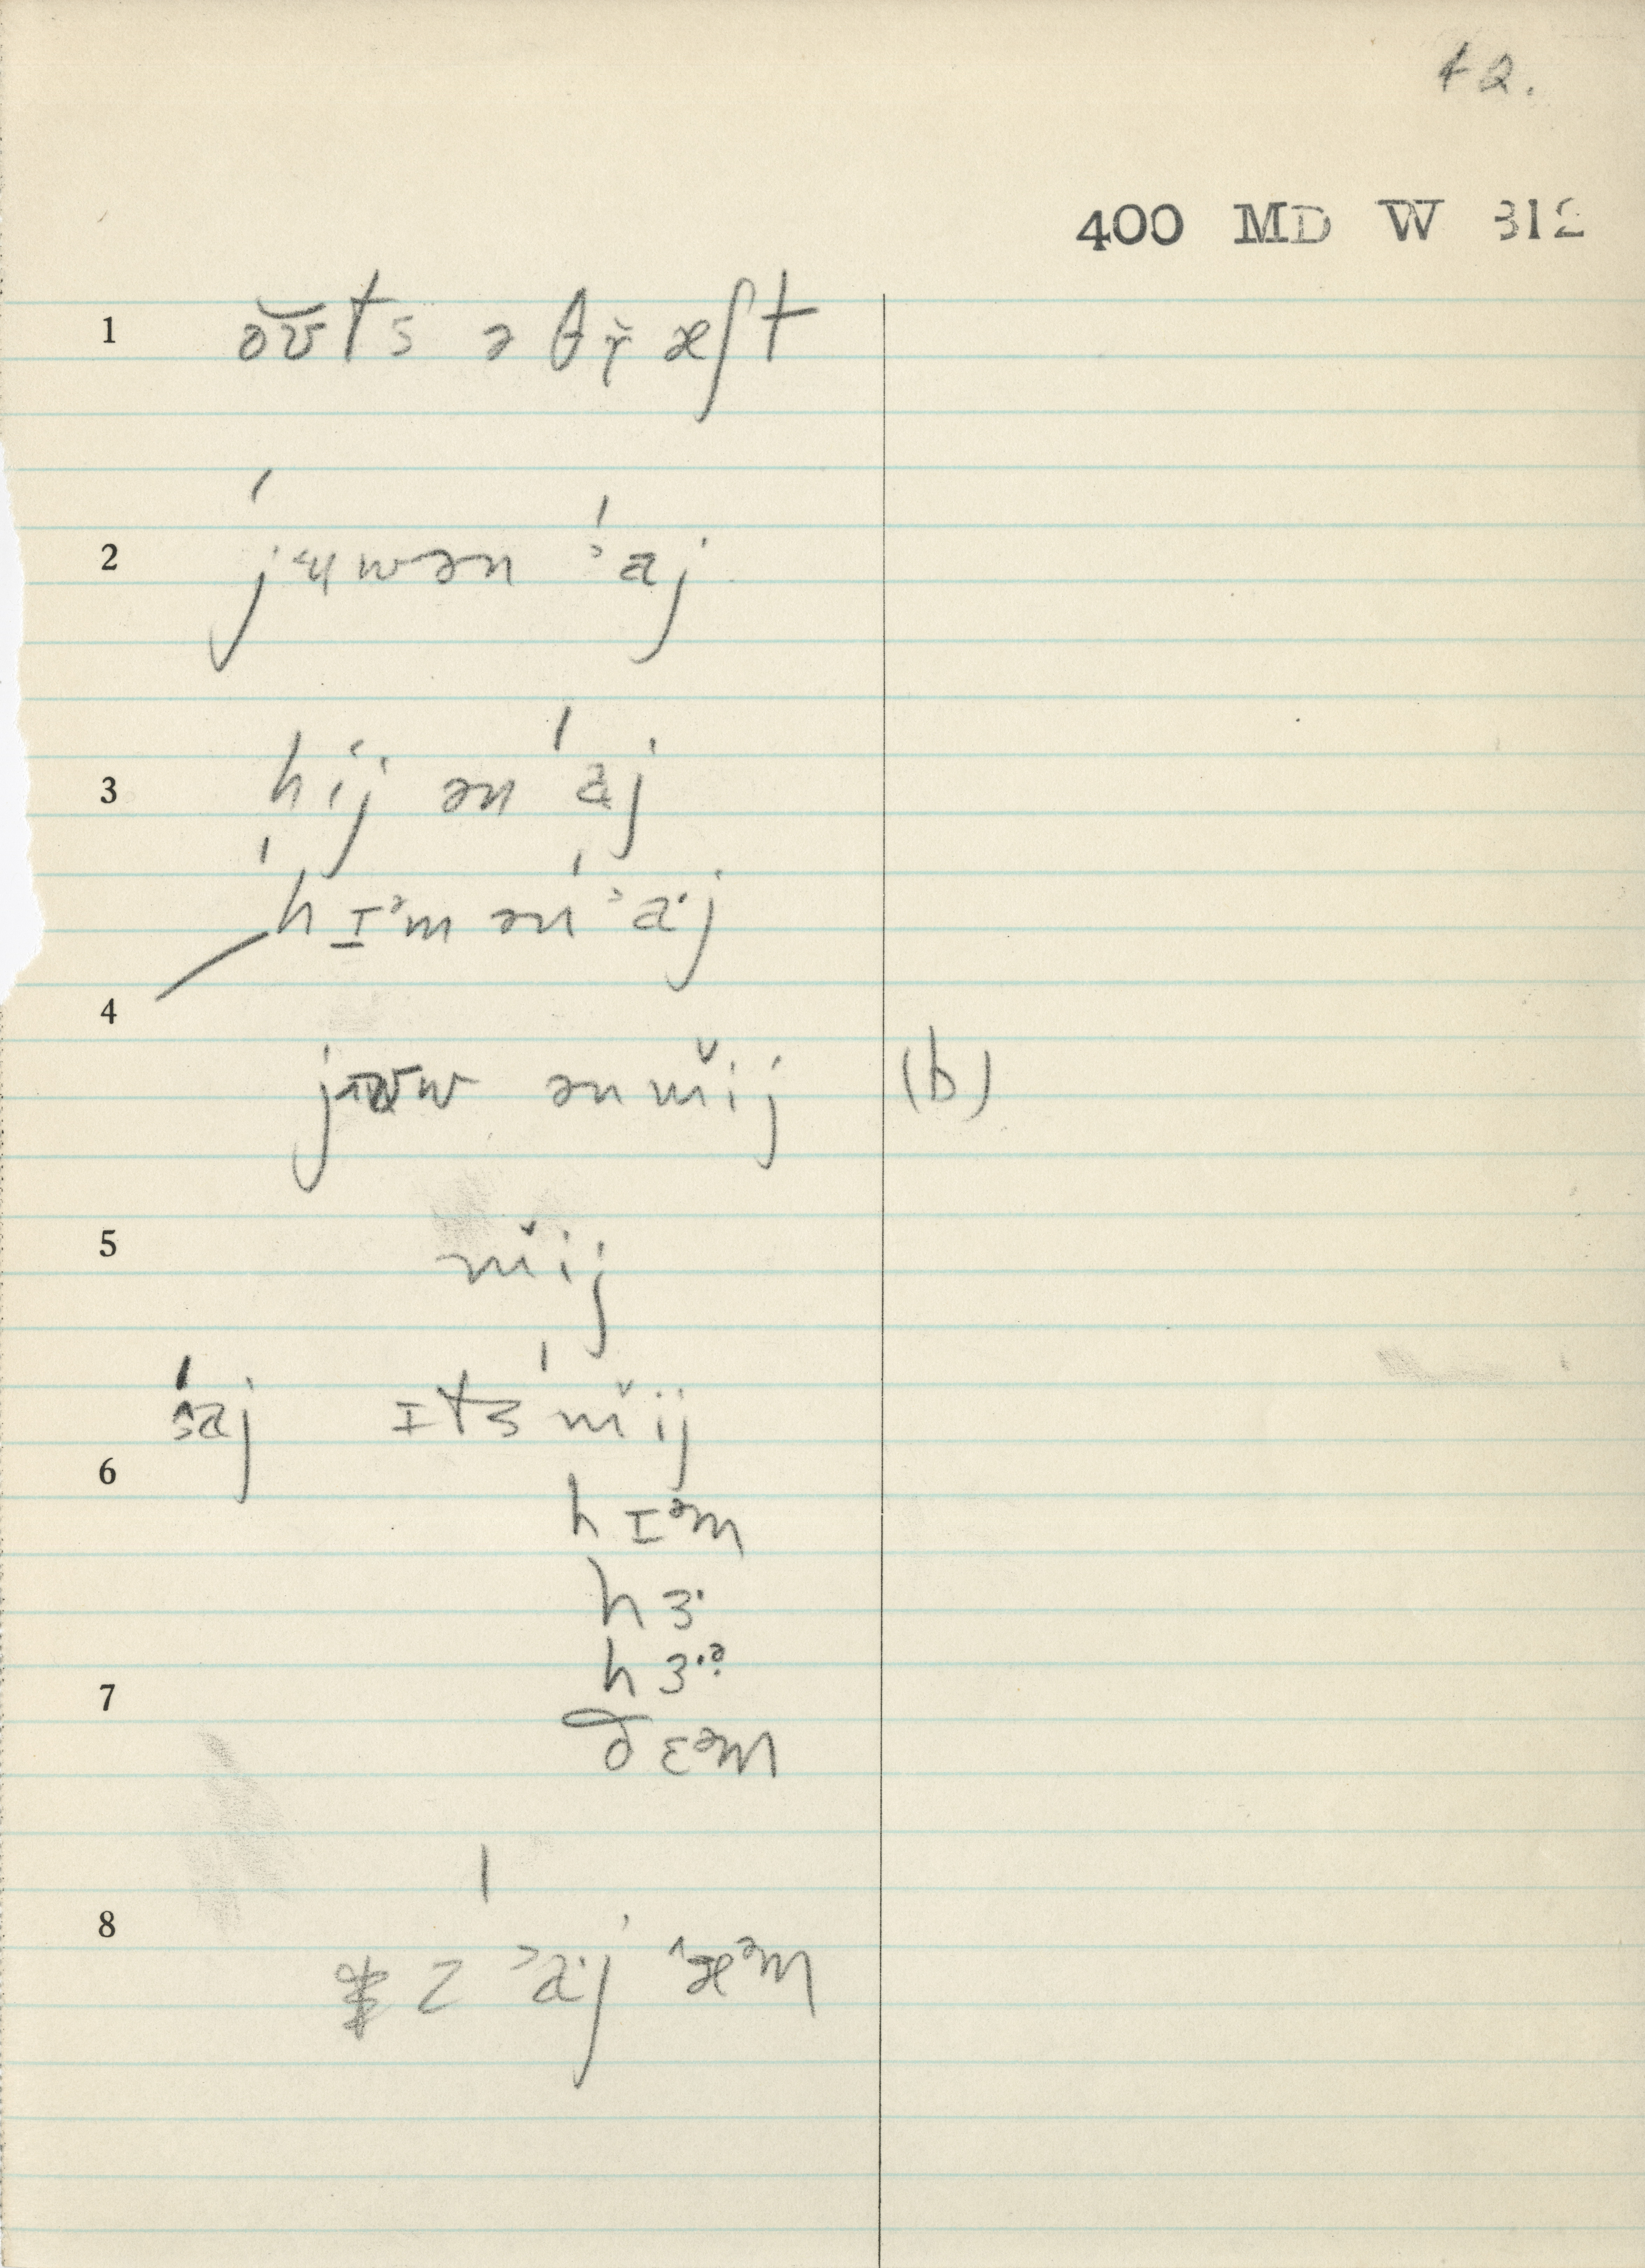 42.
400 MD W 312
1 o̯ʊts ə θɤ̆æʃt
2 ˈjʉwən ˈaj
3 hij ən ˈaj
ˈhɪᵊm ən ˈɑˑj
4
jʊw ən mĭj (b)
5 mĭj
ˈsaj ɪts ˈmĭj
6
hɪᵊm
hɜˑ
hɜˑᵊ
7
ðɛᵊm
8
z ˈaˑj ˈæᵊm